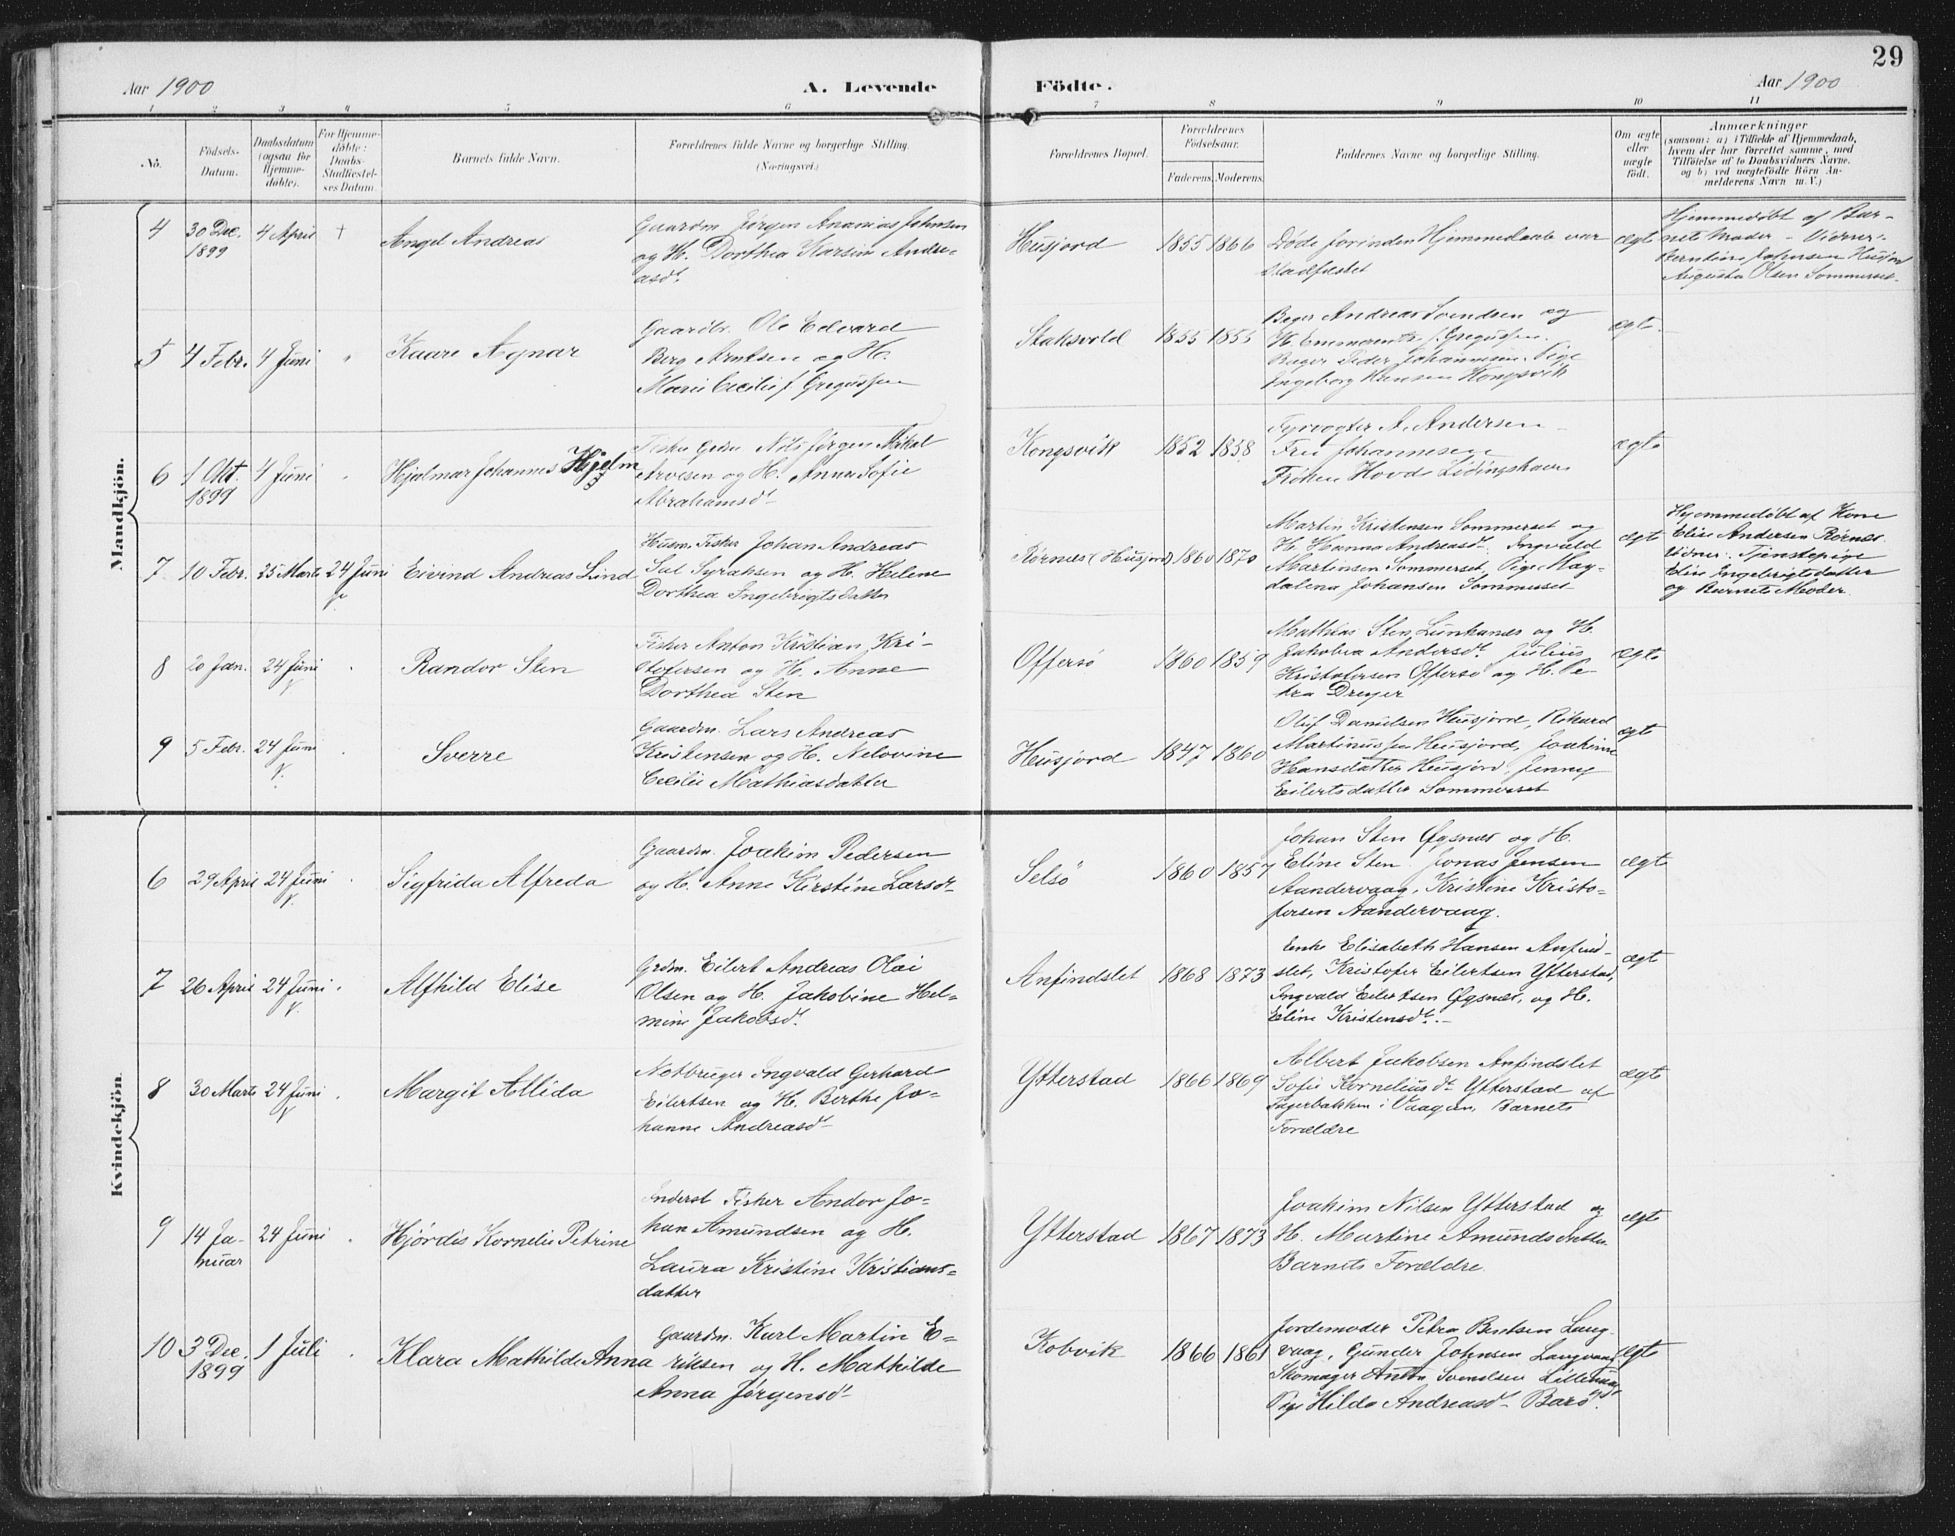 29
Aar 1900
A. Levende
Födte.
Aar 1900
1 2 3 4 5 6 7 8 9 10 11
No.
Födsels-
Datum.
Daabsdatum
(ogsaa for
Hjemme-
döbte).
For Hjemme-
döbte:
Daabs-
Stadfæstel-
ses Datum.
Barnets fulde Navn.
Forældrenes fulde Navne og borgerlige Stilling.
(Næringsvei.)
Forældrenes Bopæl.
Forældrenes
Födselsaar.
Faderens. Moderens.
Faddernes Navne og borgerlige Stilling.
Om ægte
eller
uægte
födt.
Anmærkninger
(saasom: a) i Tilfælde af Hjemmedaab,
hvem der har forrettet samme, med
Tilföielse af to Daabsvidners Navne.
og b) ved uægtefödte Börn An-
melderens Navn m. V.)
Mandkjön.
4
30 Dec.
1899
4 April
+
Angel Andreas
Gaardm. Jørgen Ananias Johnsen
og H. Dorthea Karsine Andre-
asdt
Husjord
1855 1866
Døde forinden Hjemmedaab var
stadfæstet
ægte
Hjemmedøbt af Bar-
nets Moder - Vidner:
Berntine Johnsen Husjord
Augusta Olsen Sommerset.
5
4 Febr.
4 Juni
"
Kaare Agnar
Gaardbr. Ole Edvard
Berg Arntsen og H.
Marie Cecilie f. Gregussen
Staksvold
1855 1855
Andreas Svendsen og
H. f. Gregussen.
Peder Johannesen. Pige
Ingeborg Hansen Kongsvik
ægte
6
1 Okt.
1899
4 Juni
"
Hjalmar Johannes Hjelm
Fisker Gdm Nils Jørgen Mikal
Arvesen og H. Anna Sofie
Abrahamsdt
Kongsvik
1852 1858
Fyrvogter A. Andersen
Fru Johannesen
Frøken Hovds Lødingshavn
ægte
7
10 Febr.
25 Marts
24 Juni
Eivind Andreas Lund
Husm. Fisker Johan Andreas
Sal Syraksen og H. Helene
Dorthea Ingebrigtsdatter
Rørnes (Husjord)
1860 1870
Martin Kristensen Sommerset og
H. Hanna Andreasdt. Ingvald
Martinsen Sommerset, Pige Mag-
dalena Johansen Sommerset
ægte
Hjemmedøbt af Kone
Elise Andersen Rørnes
Vidner: Tjenstepige
Eline Ingebrigtsdatter
og Barnets Moder.
8
20 Jan.
24 Juni
"
Randor Sten
Fisker Anton Kristian Kri-
stofersen og H. Anne
Dorthea Sten
Offersø
1860 1859
Mathias Sten, Lunkanes og H.
Jakobea Andersdt. Julius
Kristofersen Offersø og H. Pe-
tra Dreyer
ægte
9
5 Febr.
24 Juni
"
Sverre
Gaardm. Lars Andreas
Kristensen og H. Nelovine
Cecilie Mathiasdatter
Husjord
1847 1860
Oluf Danielsen Husjord, Rikard
Martinussen Husjord, Joakime
Hansdatter Husjord, Jenny
Eilertsdatter Sommerset
ægte
Kvindekjön.
6
29 April
24 Juni
"
Sigfrida Alfreda
Gaardm. Joakim Pedersen
og H. Anne Kirstine Larsdt
Selsö
1860 1857
Johan Sten Øgsnes og H.
Eline Sten. Jonas Jensen
Aandervaag, Kristine Kristo-
fersen Aandervaag.
ægte
7
26 April
24 Juni
"
Alfhild Elise
Grdm. Eilert Andreas Olai
Olsen og H. Jakobine Hel-
mine Jakobsdt
Anfindslet
1868 1873
Enke Elisabeth Hansen Anfind-
slet, Kristofer Eilertsen Ytterstad,
Ingvald Eilertsen Øgsnes, og H.
Eline Kristensdt. -
ægte
8
30 Marts
24 Juni
"
Margit Allida
Notbruger Ingvald Gerhard
Eilertsen og H. Berthe Jo-
hanne Andreasdt
Ytterstad
1866 1869
Albert Jakobsen Anfindslet
Sofie Korneliusdt Ytterstad af
i Vaagan, Barnets
Forældre
ægte
9
14 Ja-
nuar
24 Juni
"
Hjördis Kornelie Petrine
Inderst Fisker Andor Jo-
han Amundsen og H.
Laura Kristine Kristians-
datter
Ytterstad
1867 1873
Joakim Nilsen Ytterstad og
H. Martine Amundsdatter
Barnets Forældre.
ægte
10
3 Dec.
1899
1 Juli
"
Klara Mathilde Anna
Gaardm. Karl Martin E-
riksen og H. Mathilde
Anna Jørgensdt
Kobvik
1866 1861
Jordemoder Petra Bentsen Lang-
vaag, Gunder Johnsen Langvaag
Skomager Anton Svendsen
Pige Hilda Andreasdt Barø.
ægte